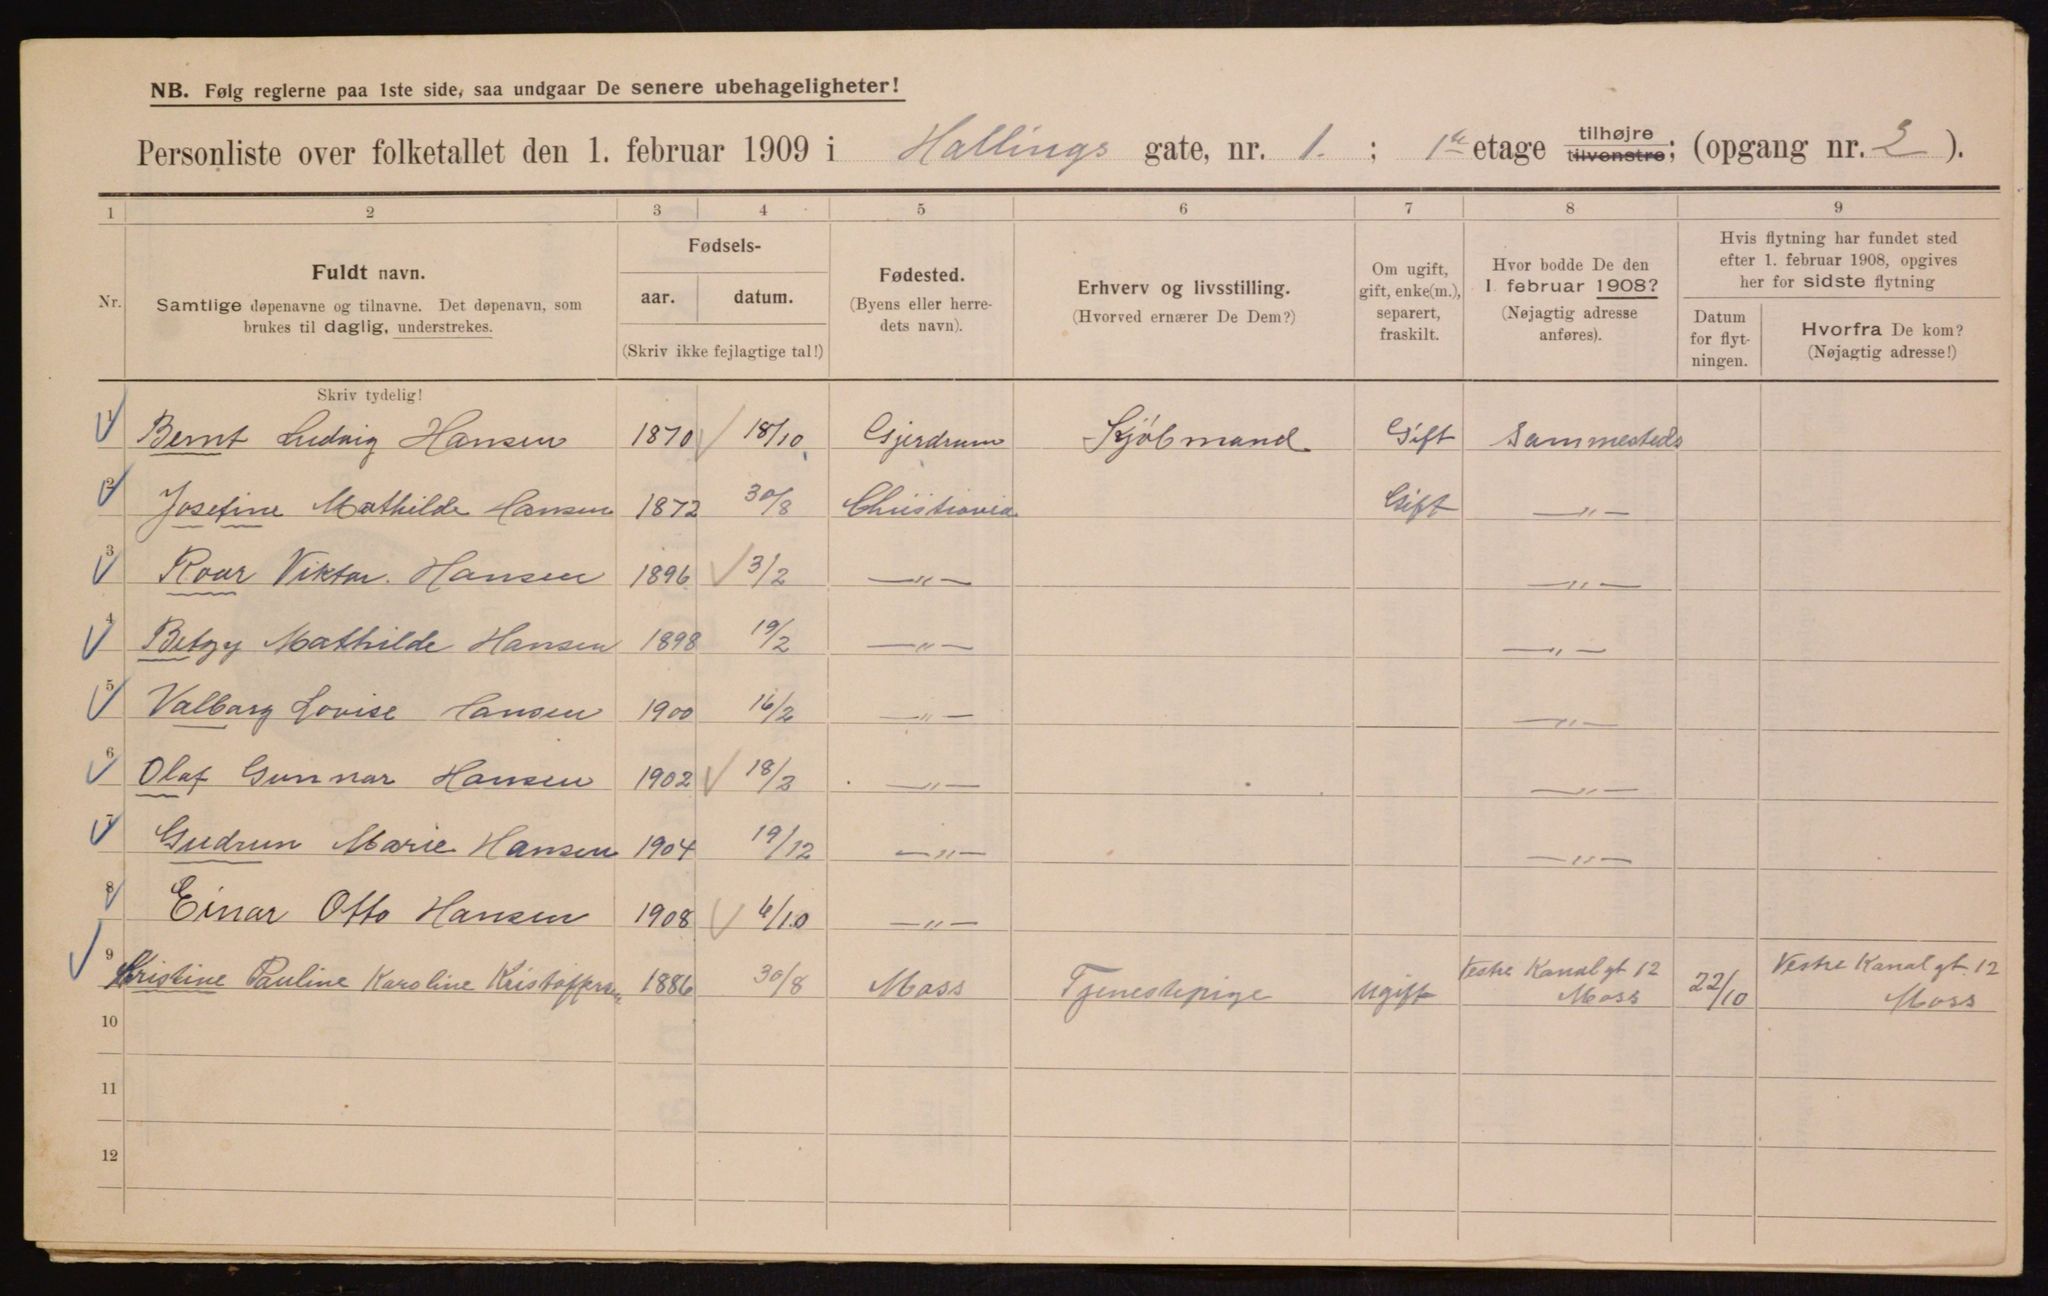 NB. Følg reglerne paa 1ste side, saa undgaar De senere ubehageligheter!
Personliste over folketallet den 1. februar 1909 i Hallings gate, nr. 1. ; 1ste etage tilhøjre tilvenstre; (opgang nr. 2 ).
1 2 3 4 5 6 7 8 9
Nr.
Fuldt navn.
Samtlige døpenavne og tilnavne. Det døpenavn, som
brukes til daglig, understrekes.
Fødsels-
aar. datum.
(Skriv ikke fejlagtige tal!)
Fødested.
(Byens eller herre-
dets navn).
Erhverv og livsstilling.
(Hvorved ernærer De Dem?)
Om ugift,
gift, enke(m.),
separert,
fraskilt.
Hvor bodde De den
1. februar 1908?
(Nøjagtig adresse
anføres).
Hvis flytning har fundet sted
efter 1. februar 1908, opgives
her for sidste flytning
Datum
for flyt-
ningen.
Hvorfra De kom?
(Nøjagtig adresse!)
Skriv tydelig!
1 Bernt Ludvig Hansen 1870 18/10 Gjerdrum Kjøbmand Gift Sammesteds
2 Josefine Mathilde Hansen 1872 30/8 Christiania Gift —"—
3 Roar Viktor. Hansen 1896 3/2 —"— —"—
4 Betzy Mathilde Hansen 1898 19/2 —"— —"—
5 Valborg Lovise Hansen 1900 16/2 —"— —"—
6 Olaf Gunnar Hansen 1902 18/3 —"— —"—
7 Gudrun Marie Hansen 1904 19/12 —"— —"—
8 Einar Otto Hansen 1908 6/10 —"—
9 Kristine Pauline Karoline Kristoffersen 1886 30/8 Moss Tjenestepige ugift Vestre Kanal gt 12 Moss 22/10 Vestre Kanal gt. 12 Moss
10
11
12